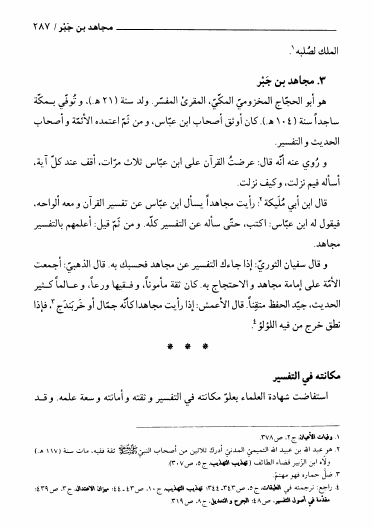 مجاهد بن جَبْر / ٢٨٧
الملك لصُلبه ١.
٣. مجاهد بن جَبْر
هو أبو الحجّاج المخزوميّ المكّيّ، المقرئ المفسّر. ولد سنة (٢١ هـ.)، و تُوفّي بمكّة
ساجداً سنة (١٠٤ هـ.). كان أوثق أصحاب ابن عبّاس، و من ثمّ اعتمده الأئمّة و أصحاب
الحديث و التفسير.
و رُوي عنه أنّه قال: عرضتُ القرآن على ابن عبّاس ثلاث مرّات، أقف عند كلّ آية،
أسأله فيم نزلت، وكيف نزلت.
قال ابن أبي مُلَيكة ٢: رأيت مجاهداً يسأل ابن عبّاس عن تفسير القرآن و معه ألواحه،
فيقول له ابن عبّاس: اكتب، حتّى سأله عن التفسير كلّه. و من ثَمّ قيل: أعلمهم بالتفسير
مجاهد.
و قال سفيان الثوريّ: إذا جاءك التفسير عن مجاهد فحسبك به. قال الذهبيّ: أجمعت
الأمّة على إمامة مجاهد و الاحتجاج به. كان ثقة مأموناً، و فقيها ورعاً، و عالماً كثير
الحديث، جيّد الحفظ متقِناً. قال الأعمش: إذا رأيت مجاهدا كأنّه جمّال أو خَرَبَندَج ٣، فإذا
نطق خرج من فيه اللؤلؤ ٤.
* * *
مكانته في التفسير
استفاضت شهادة العلماء بعلوّ مكانته في التفسير و ثقته و أمانته و سعة علمه. و قد
١. وفيات الأعيان، ج ٢، ص ٣٧٨.
٢. هو عبد الله بن عبيد الله التميمي المدني أدرك ثلاثين من أصحاب النبيّ ﷺ ثقة فقيه. مات سنة (١١٧ هـ)
ولاّه ابن الزبير قضاء الطائف (تهذيب التهذيب، ج ٥، ص ٣٠٧)
٣. ضلّ حماره فهو مهتمّ.
٤. راجع: ترجمته في الطبقات، ج ٥، ص ٣٤٣ـ٣٤٤؛ تهذيب التهذيب، ج ١٠، ص ٤٣ـ٤٤؛ ميزان الاعتدال، ج ٣، ص ٤٣٩؛
مقدّمة في أصول التفسير، ص ٤٨؛ الجرح و التعديل، ج ٨، ص ٣١٩.